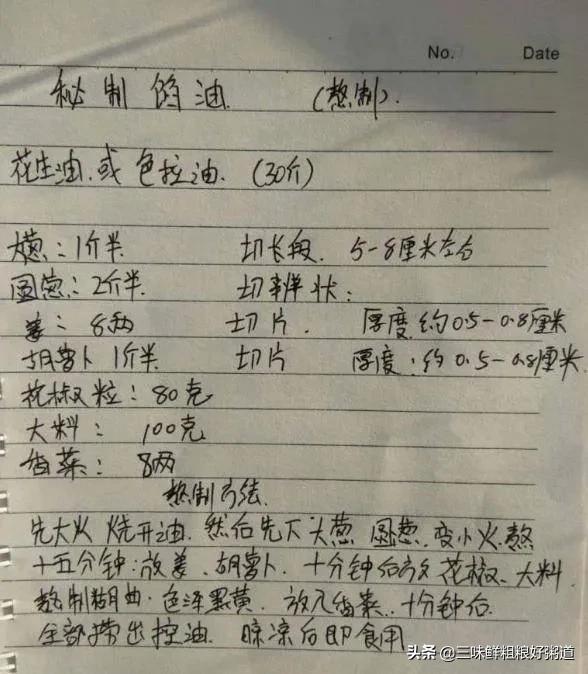 No. Date
秘制馅油 (熬制).
花生油.或色拉油. (30斤)
大葱:1斤半. 切长段. 5-8厘米左右
圆葱:2斤半. 切辨状:
姜: 8两 切片. 厚度约0.5-0.8厘米
胡萝卜1斤半. 切片 厚度:约0.5-0.8厘米.
花椒粒:80克
大料: 100克
香菜: 8两
熬制方法.
先大火烧开油.然后先下大葱 圆葱.变小火.熬
十五分钟:放姜.胡萝卜.十分钟后放花椒、大料
熬制 色泽黑黄. 放入香菜..十分钟后.
全部捞出控油. 晾凉后即食用
头条 @三味鲜粗粮好粥道